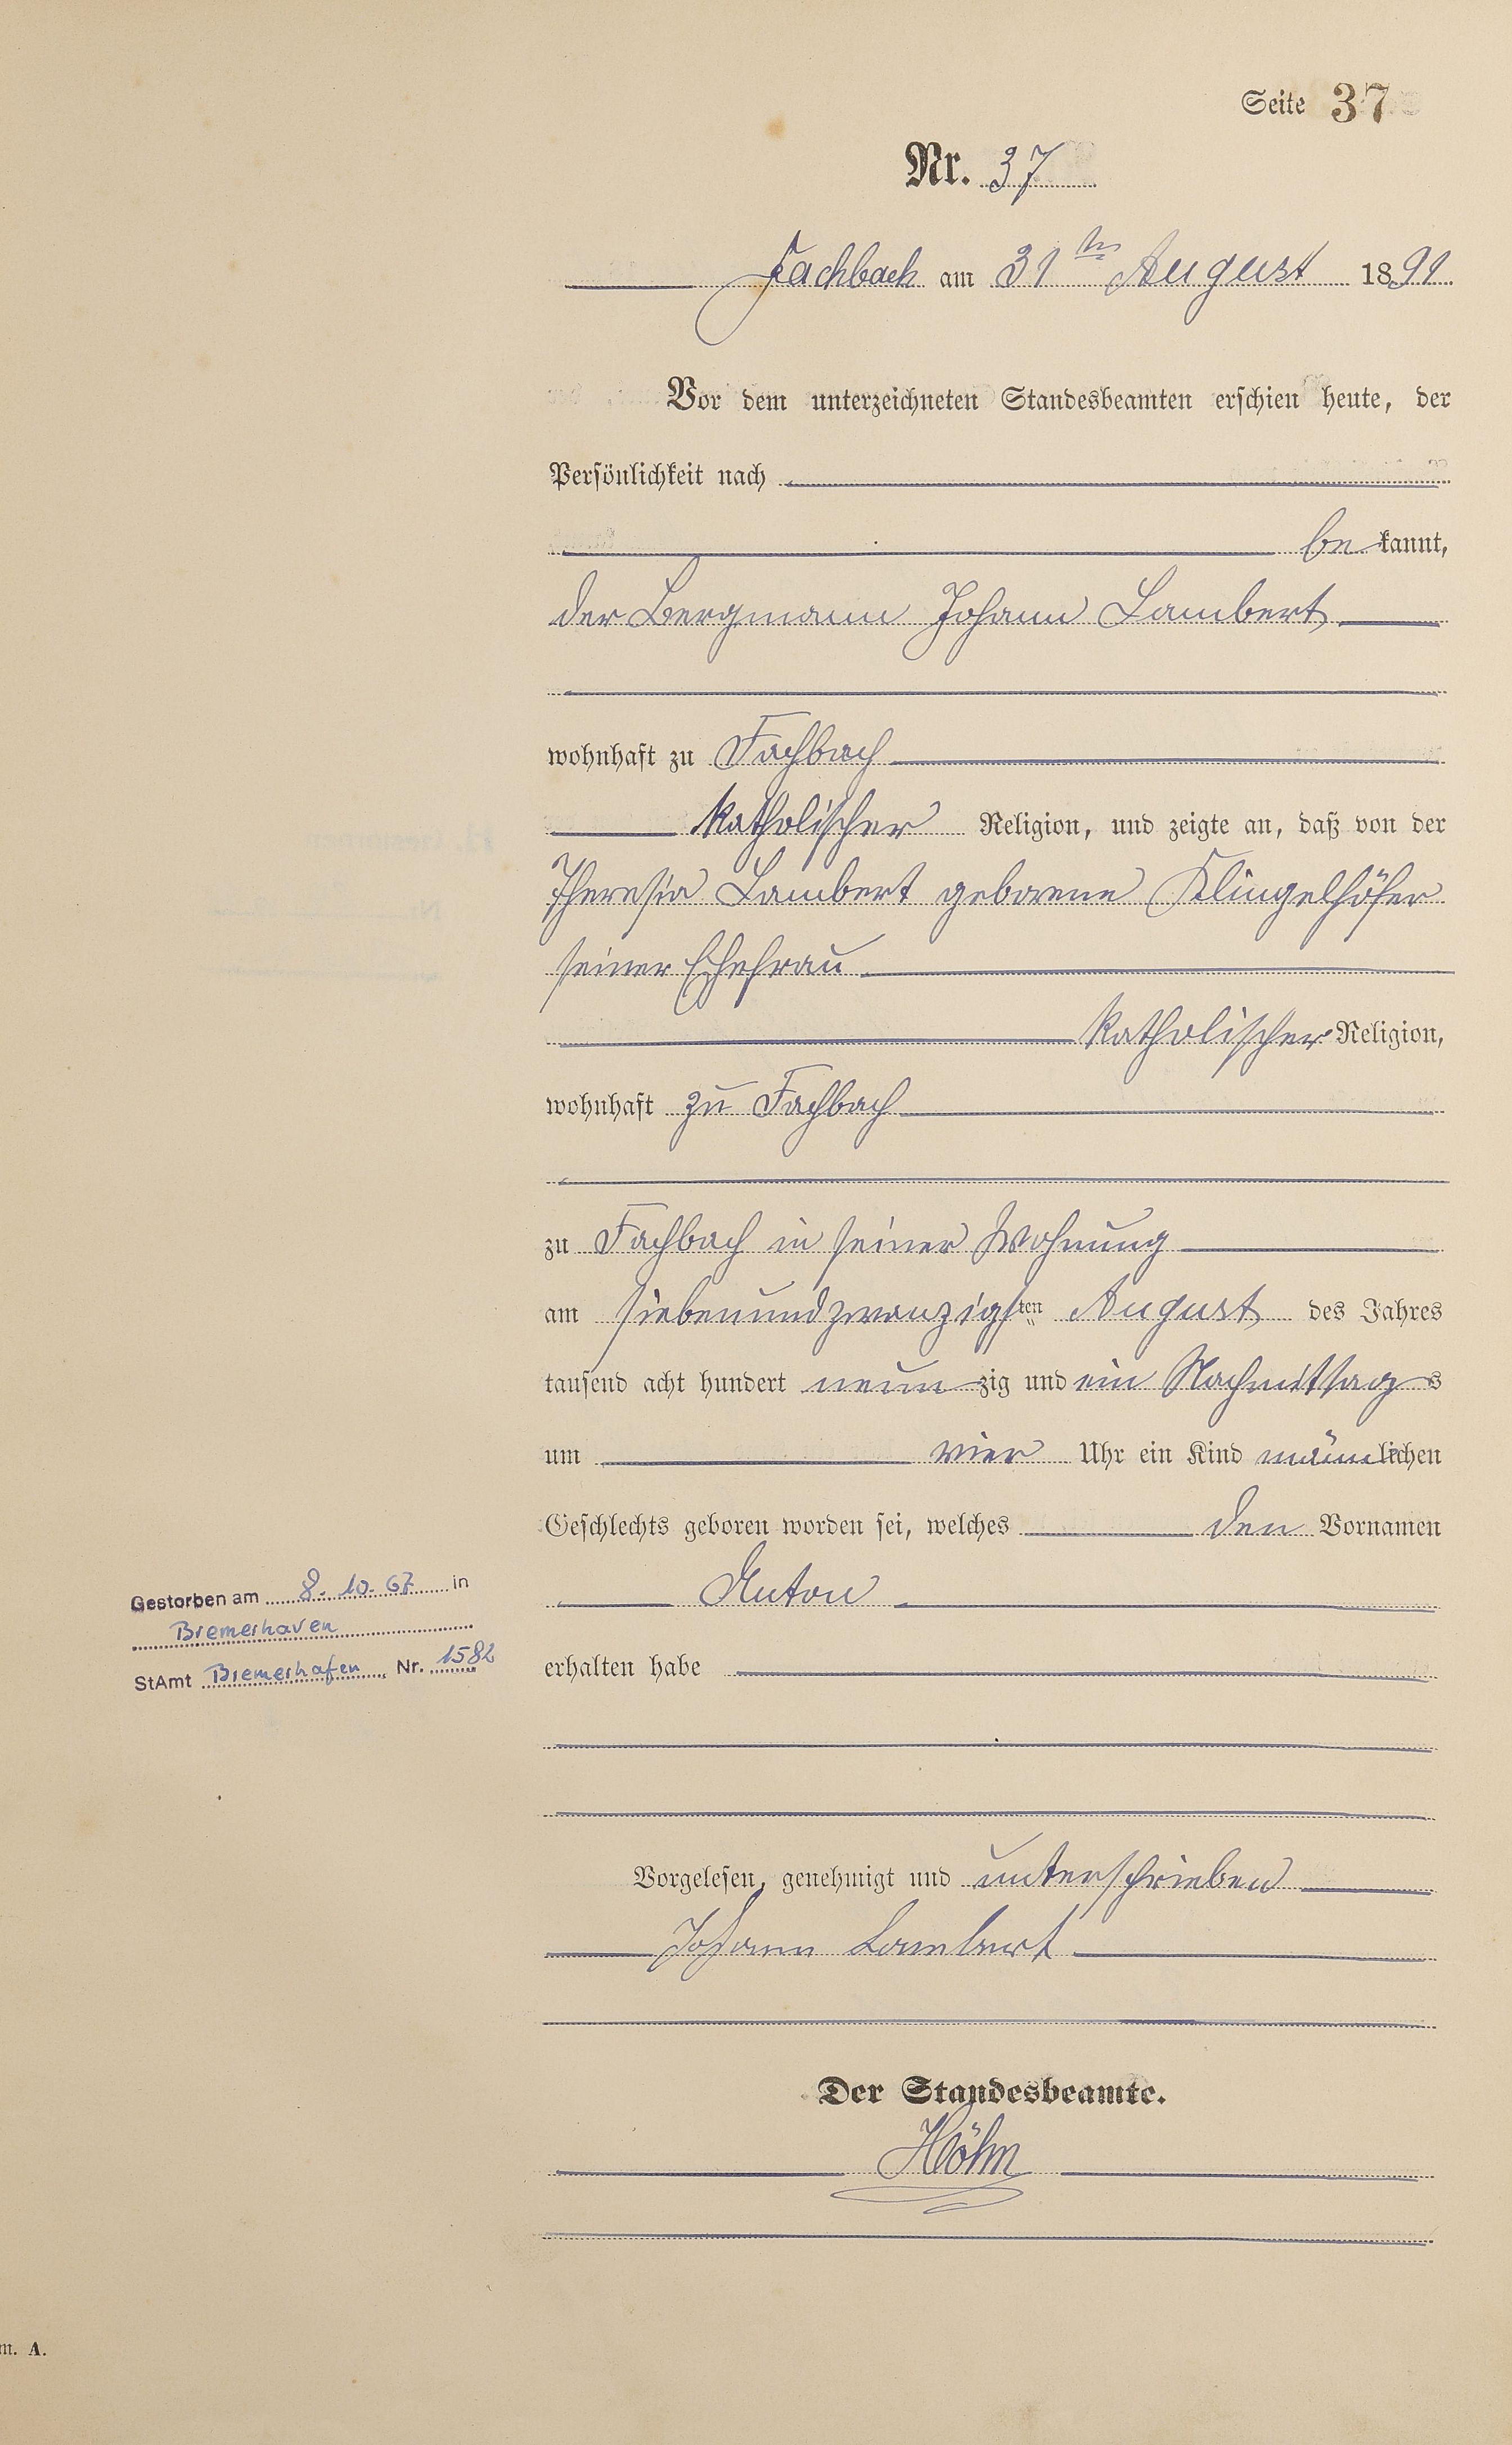 Seite 37
Nr. 37
Fachbach am 31ten August 1891
Vor dem unterzeichneten Standesbeamten erschien heute, der
Persönlichkeit nach
be kannt,
der Bergmann Johann Lambert
wohnhaft zu Fachbach
katholischer Religion, und zeigte an, daß von der
Theresia Lambert geborene Klingelhöfer
seiner Ehefrau
katholischer Religion,
wohnhaft zu Fachbach
zu Fachbach in seiner Wohnung
am siebenundzwanzigsten August des Jahres
tausend acht hundert neun zig und ein Nachmittags
um vier Uhr ein Kind männlichen
Geschlechts geboren worden sei, welches den Vornamen
Anton
erhalten habe
Gestorben am 8.10.67 in
Bremerhaven
StAmt Bremerhafen Nr. 1582
Vorgelesen, genehmigt und unterschrieben
Johann Lambert
Der Standesbeamte.
Höhn
m. A.